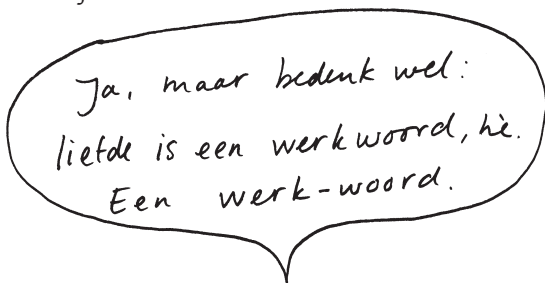 Ja, maar bedenk wel:
liefde is een werkwoord, hè.
Een werk-woord.